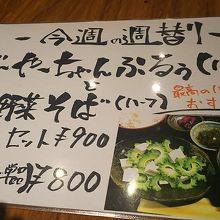 －今週の週替り－
ーやーちゃんぷるぅ(ハ
と
野菜そば(ハーフ)
セット¥900
単品¥800
最高の
おす